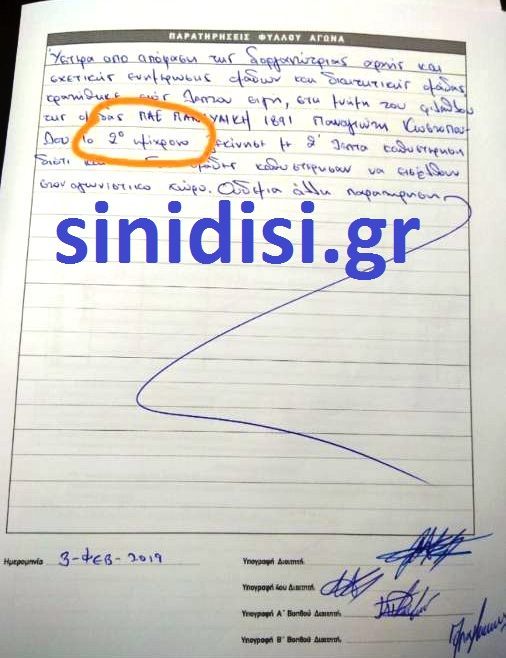 ΠΑΡΑΤΗΡΗΣΕΙΣ ΦΥΛΛΟΥ ΑΓΩΝΑ
Ύστερα από απόφαση της διοργανώτριας αρχής και
σχετικής ενημέρωσης ομάδων και διαιτητικής ομάδας,
κρατήθηκε ενός λεπτού σιγή, στη μνήμη του φιλάθλου
της ομάδας ΠΑΕ 1891 Παναγιώτη Κωστοπού
λου. Το 2° ημίχρονο ξεκίνησε με 2' λεπτά καθυστέρηση
διότι καθυστέρησαν να εισέλθουν
στον αγωνιστικό χώρο. Ουδεμία άλλη παρατήρηση
sinidisi.gr
Ημερομηνία 3-ΦΕΒ-2019
Υπογραφή Διαιτητή
Υπογραφή 4ου Διαιτητή
Υπογραφή Α΄ Βοηθού Διαιτητή
Υπογραφή Β΄ Βοηθού Διαιτητή